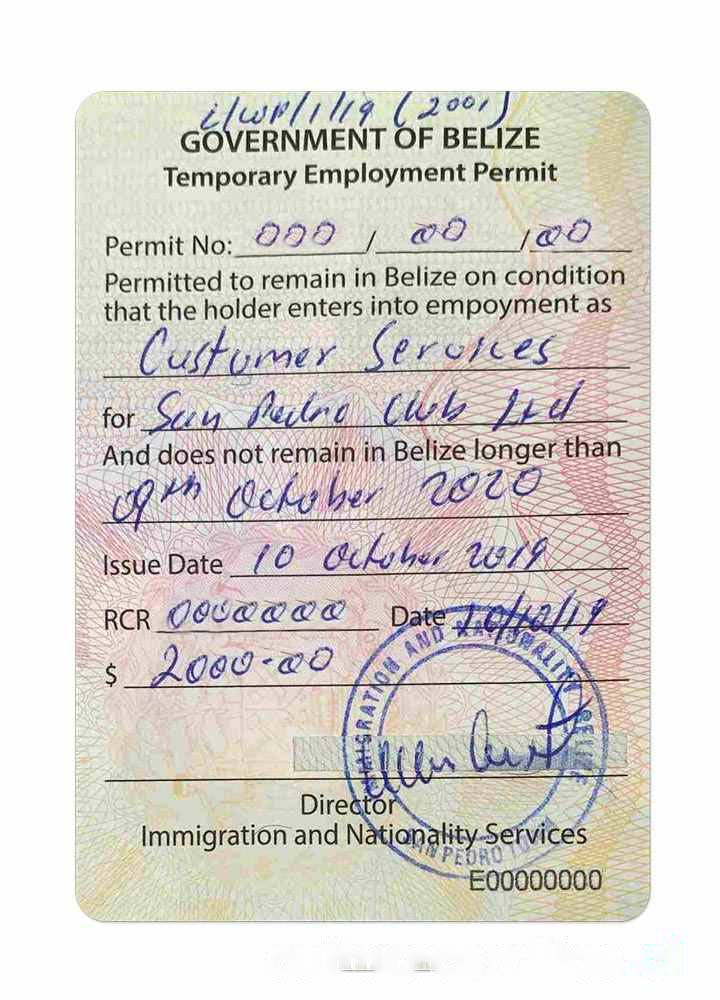 i/WP/1/19 (2001)
GOVERNMENT OF BELIZE
Temporary Employment Permit
Permit No: 000 / 00 / 00
Permitted to remain in Belize on condition
that the holder enters into empoyment as
Customer Services
for San Pedro Club Ltd
And does not remain in Belize longer than
09th October 2020
Issue Date 10 October 2019
RCR 0000000 Date 10/10/19
$ 2000-00
IMMIGRATION AND NATIONALITY BELIZE
Director
Immigration and Nationality Services
SAN PEDRO TOWN
E00000000